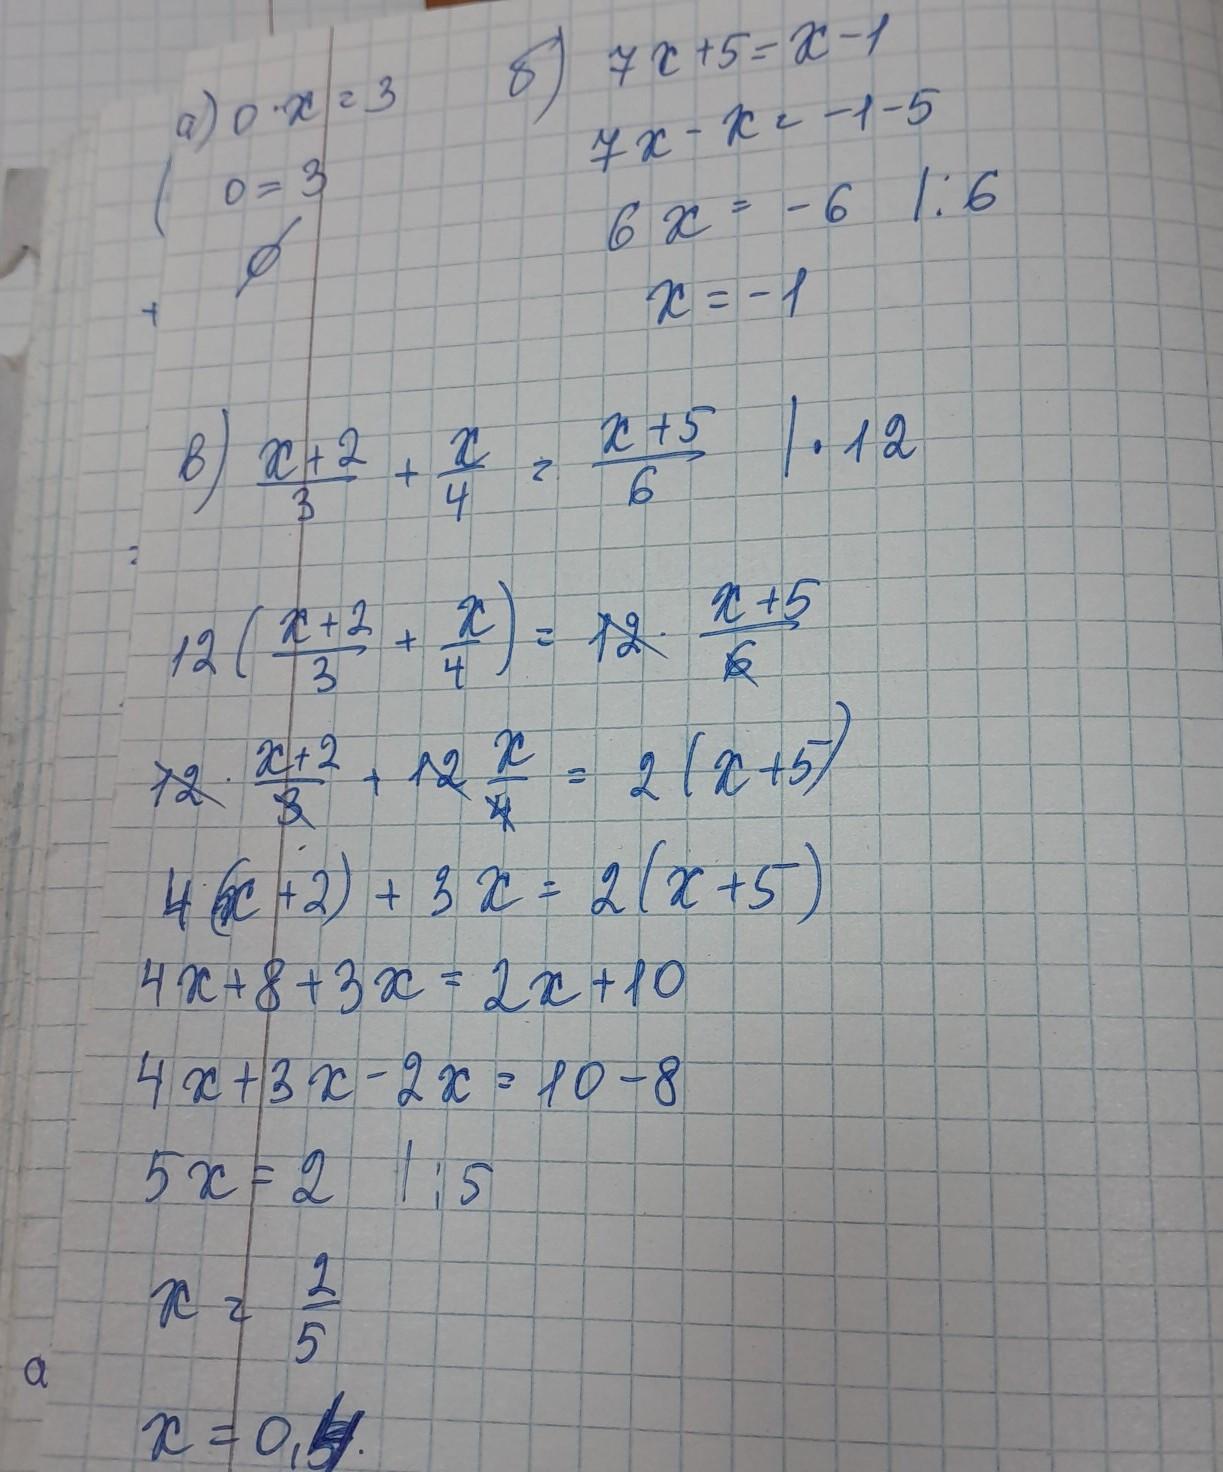 а) 0·x = 3
0 = 3
∅
б) 7x+5=x-1
7x-x=-1-5
6x = -6 |:6
x = -1
в) (x+2)/3 + x/4 = (x+5)/6 |·12
12((x+2)/3 + x/4) = 12·(x+5)/6
12·(x+2)/3 + 12 x/4 = 2(x+5)
4(x+2)+3x=2(x+5)
4x+8+3x=2x+10
4x+3x-2x=10-8
5x=2 |:5
x = 2/5
x = 0,4.
а